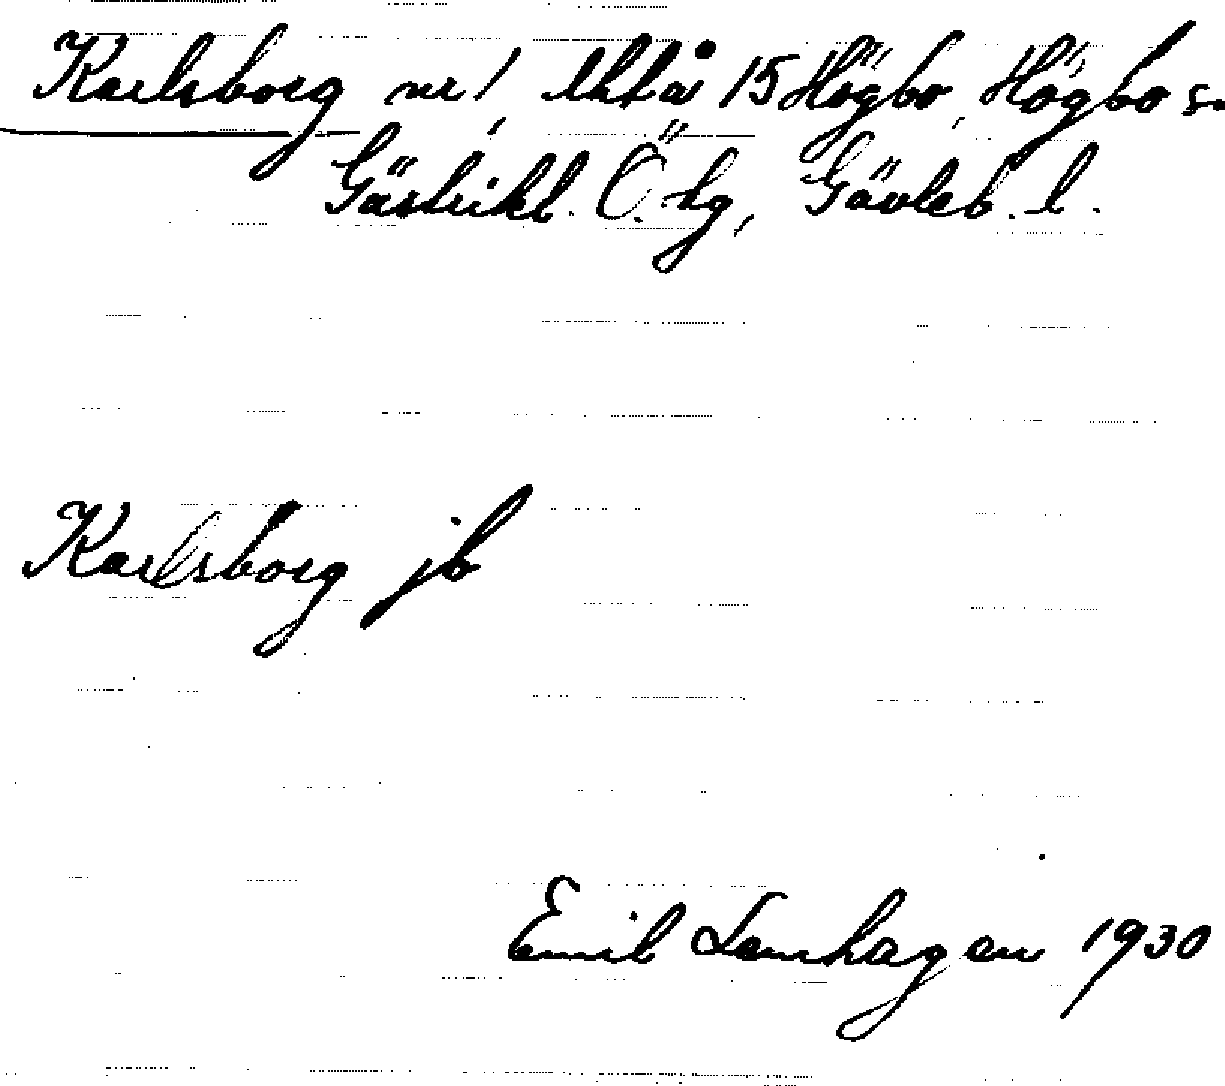 Karlsborg nr 1, Uttå 15 Högbo, Högbo sn
Gästrikl. Ö. hg, Gävleb. l.
Karlsborg jb
Emil Lenhagen 1930